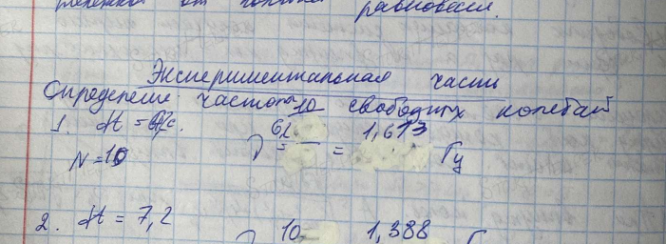 от равновесия.
Экспериментальная часть
Определение частоты свободных колебаний
1. Δt = с. 10 1,613
N=10 ν = = Гц
2. Δt = 7,2 10 1,388